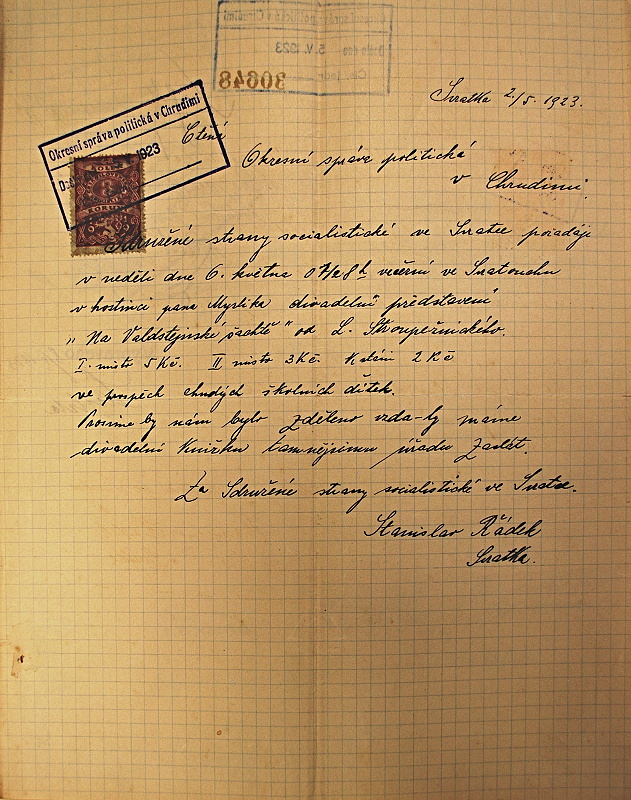 Okresní správa politická v Chrudimi
5. V. 1923
30648
Svratka 2./5. 1923.
Okresní správa politická v Chrudimi
1923
Ctěná
Okresní správa politická
v Chrudimi.
Sdružené strany socialistické ve Svratce pořádají
v neděli dne 6. května o 1/2 8 h večerní ve Svratouchu
v hostinci pana Myslika divadelní představení
"Na Valdštejnské šachtě" od L. Stroupežnického.
I. místo 5 Kč. II místo 3 Kč. K stání 2 Kč
ve prospěch chudých školních dítek.
Prosíme by nám bylo zděleno vzda-ly máme
divadelní knížku tamnějšímu úřadu zaslat.
Za Sdružené strany socialistické ve Svratce.
Stanislav Řádek
Svratka.